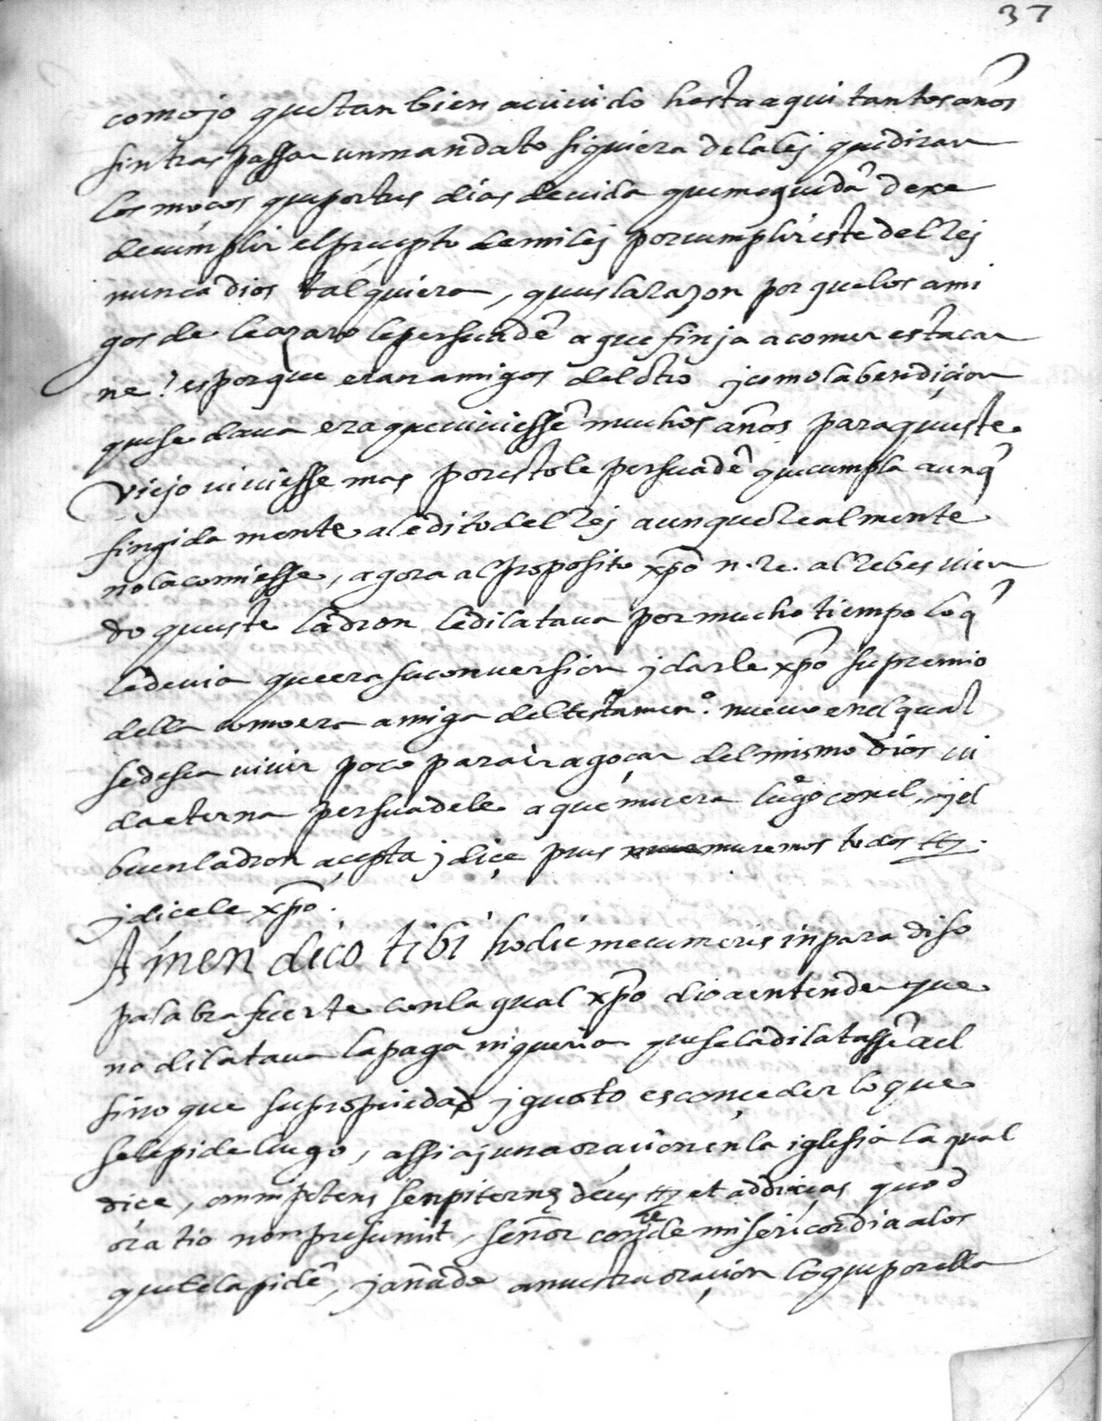 37
como jo que tan bien a uiuido hasta aqui tantos años
sin traspassar un mandato siquiera de la lej que diran
los moços que por tres dias de uida que me quedã dexe
de cumplir el precepto de mi lej por cumplir este del Rej
nunca dios tal quiera, que es la razon por que los ami
gos de leazaro le persuadẽ a que finja a comer esta car
ne? es porque eran amigos del otro j como la bendiçion
que se daua era que uiuiessẽ muchos años para que este
Viejo uiuiesse mas por esto le persuadẽ que cumpla aunq̃
fingida mente al edito del Rej aunque Realmente
no la comiesse, agora al proposito xpõ n. re. al Rebes uien
do que este ladron le dilataua por mucho tiempo lo q̃
le deuia que era su conuersion j darle xpõ su premio
della como era amiga del testamenº. nueuo en el qual
se desea uiuir poco para ir a goçar del mismo dios ui
da eterna persuadele a que muera luego con el, j el
buen ladron açepta j diçe pues muremos todos etc.
j dicele xpõ.
Amen dico tibi hodie mecum eris in paradiso
palabra fuerte con la qual xpõ dio a entender que
no dilataua la paga ni queria que se la dilatassẽ a el
sino que su propiedad j gusto es conçeder lo que
se le pide luego, assi aj una oraçion en la iglesia la qual
dice, omnipotens senpiterne deus etc et addiçias quod
oratio non presumit, señor conçede misericordia a los
que te la pidẽ, j añade a nuestra oraçion lo que por ella